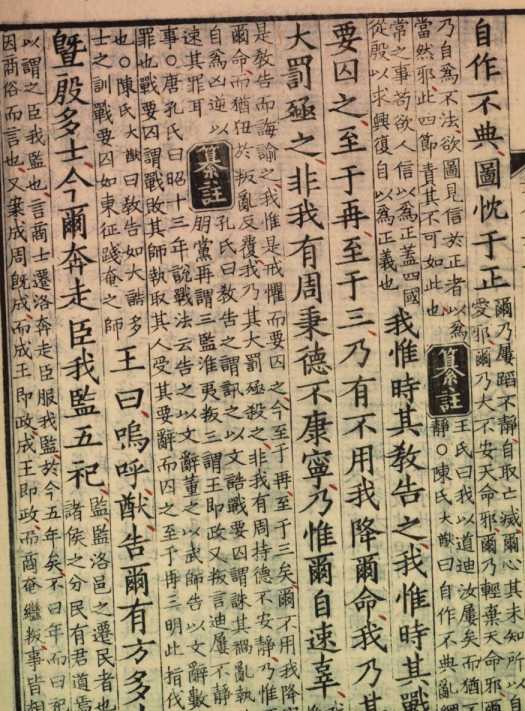 自作不典圖忱于正
爾乃屢蹈不靜自取亡滅爾心其未知所以自
愛邪爾乃大不安天命邪爾乃輕棄天命邪爾
乃自爲不法欲圖見信於正者以爲
當然邪此四節責其不可如此也
纂註
王氏曰我以道迪汝屢矣而猶不
靜○陳氏大猷曰自作不典亂綱
常之事苟欲人信以爲正蓋四國
從殷以求興復自以爲正義也
我惟時其教告之我惟時其戰
要囚之至于再至于三乃有不用我降爾命我乃其
大罰殛之非我有周秉德不康寧乃惟爾自速辜
是教告而誨諭之我惟是戒懼而要囚之今至于再至于三矣爾不用我降
爾命而猶狃於叛亂反覆我乃其大罰殛殺之非我有周持德不安靜乃惟爾
自爲凶逆以
速其罪耳
纂註
孔氏曰教告之謂訊之以文誥戰要囚謂誅其禍亂執
朋黨再謂三監淮夷叛三謂王即政又叛言迪屢不靜
事○唐孔氏曰昭十三年說戰法云告之以文辭董之以武師告以文辭數
罪也戰要囚謂戰敗其師執取其人受其要辭而囚之至于再三明此指伐
也○陳氏大猷曰教告如大誥多
士之訓戰要囚如東征踐奄之師
王曰嗚呼猷告爾有方多士
暨殷多士今爾奔走臣我監五祀
監監洛邑之遷民者也
諸侯之分民有君道焉
以謂之臣我監也言商士遷洛奔走臣服我監於今五年矣不曰年而曰祀
因商俗而言也又案成周旣成而成王即政成王即政而商奄繼叛事皆相